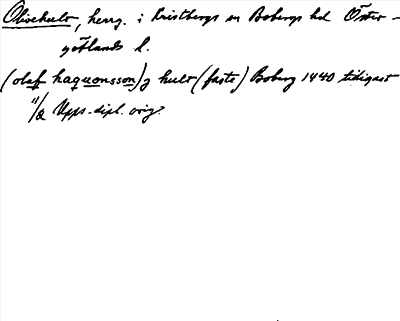 Olivehult, herrg. i Kristbergs sn Bobergs hd Öster-
götlands l.
(olaf haquonsson) j hult (faste) Boberg 1440 tidigast
11/2 Upps. dipl. orig.